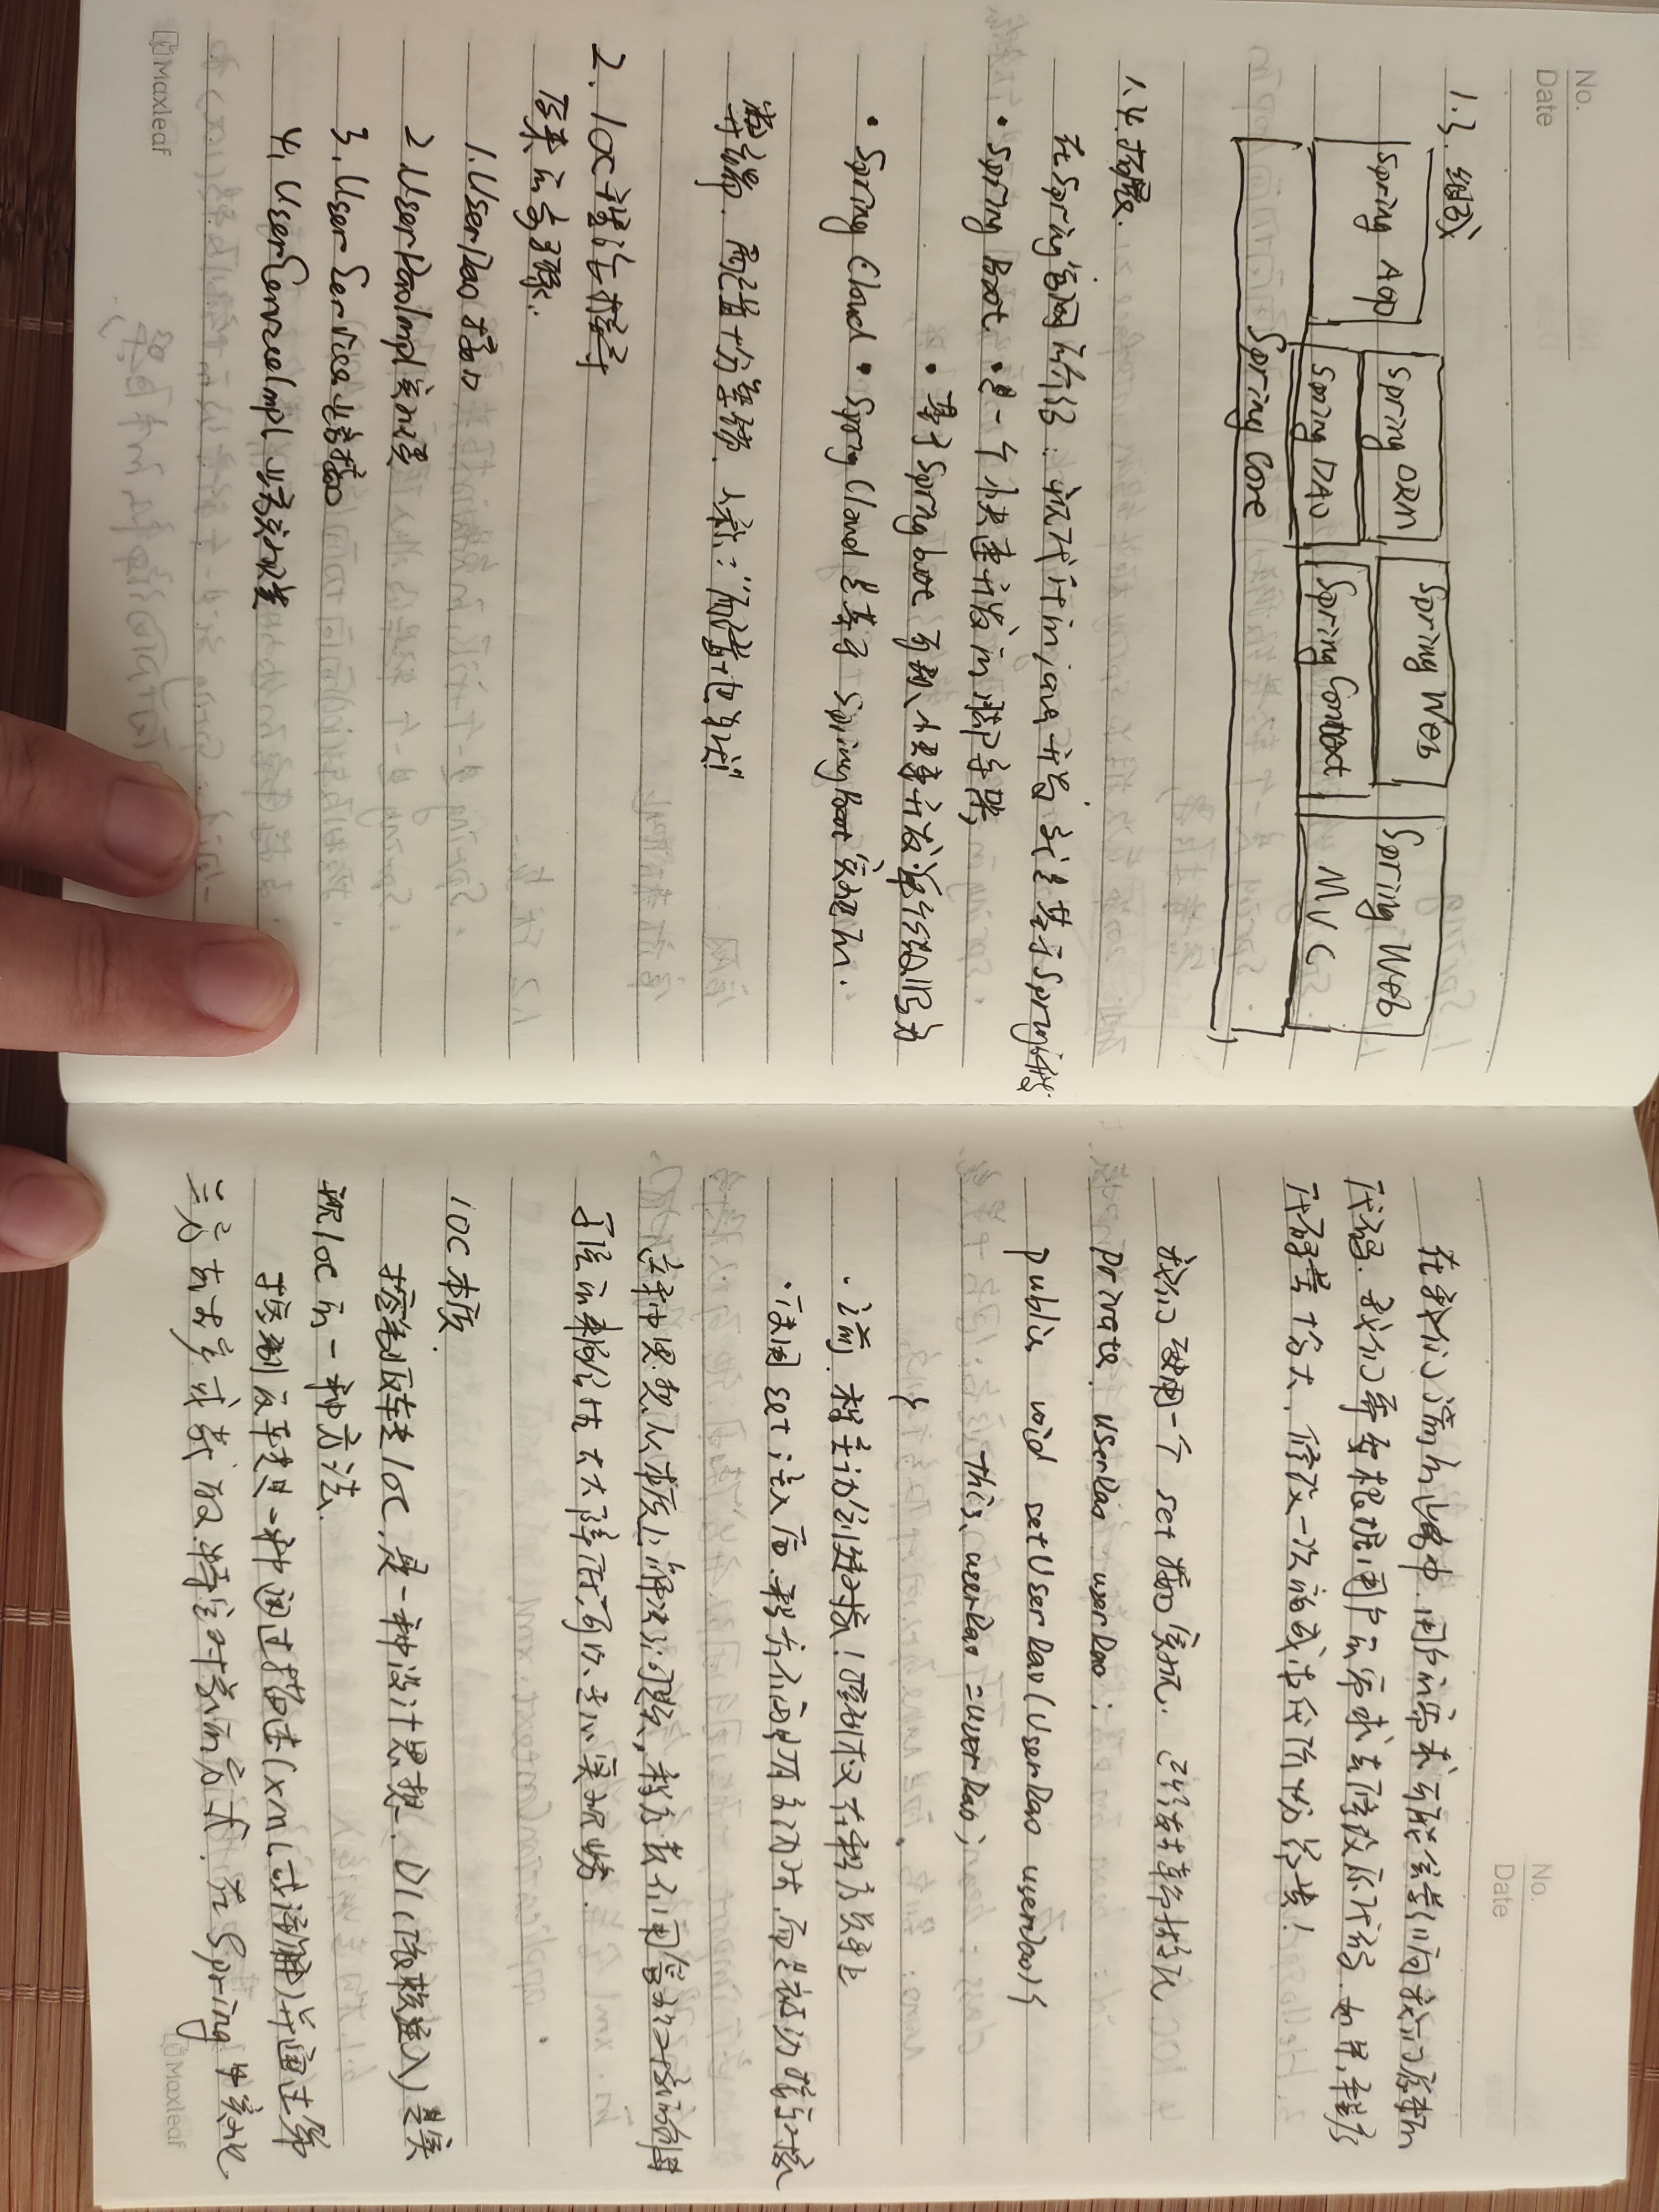 No.
Date
1.3. 组成
Spring AOP
Spring ORM
Spring Web
Spring Web
MVC
Spring DAO
Spring Context
Spring Core
1.4. 拓展.
在Spring官网的介绍: 现代化的java开发 就是基于Spring的开发.
· Spring Boot · 是一个快速开发的脚手架,
· 基于Spring boot 可以快速开发单个微服务
· Spring Cloud · Spring Cloud 是基于 Spring Boot 实现的.
弊端. 配置十分繁琐. 人称: "配置地狱"
2. IOC理论推导
原来的步骤:
1. UserDao 接口
2. UserDaoImpl 实现类
3. UserService 业务接口
4. UserServiceImpl 业务实现类
Maxleaf
No.
Date
在我们之前的业务中. 用户的需求可能会影响我们原来的
代码. 我们需要根据用户的需求去修改原代码. 如果,程序
代码量十分大, 修改一次的成本代价十分昂贵!
我们使用一个 set 接口实现. 已经发生革命性变化
private UserDao userDao;
public void setUserDao(UserDao userDao){
this.userDao = userDao;
}
· 之前. 程序主动创建对象! 控制权在程序员手上
· 使用 set 注入后. 程序不再具有主动性. 而是被动接受对象
这种思想. 从本质上解决了问题, 程序员不用管理对象的创建
了系统的耦合性大大降低, 可以专心实现业务.
IOC 本质.
控制反转IOC, 是一种设计思想. DI (依赖注入) 是实
现IOC的一种方法.
控制反转是一种通过描述(xml或注解)并通过第
三方去生产或获取特定对象的方式. 在Spring中实现
Maxleaf